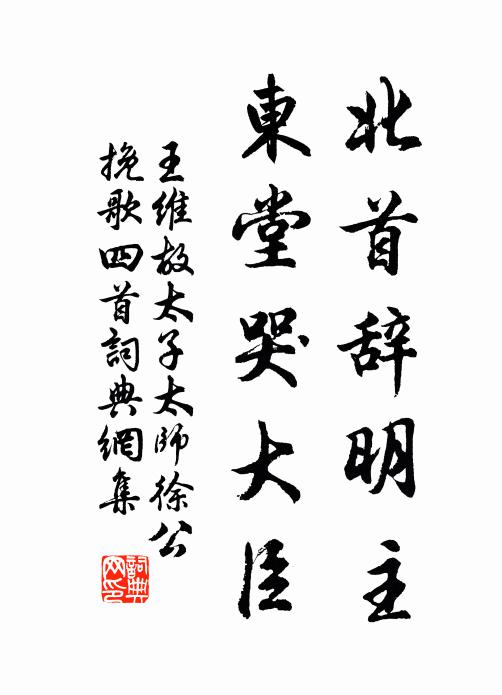 北首辞明主
東堂哭大臣
王維故太子太師徐公
挽歌四首詞典網集
詞典
网印